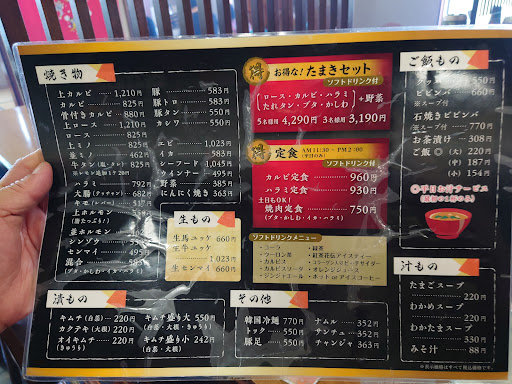 焼き物
上カルビ 1,210円
カルビ 825円
骨付きカルビ 880円
上ロース 1,210円
ロース 825円
上ミノ 825円
並ミノ 462円
牛タン(塩・タレ) 825円
キモ(レバー) 517円
上ホルモン
並ホルモン
シンゾウ
センマイ 495円
混合 583円
(ブタ・かしわ・イカ・ハラミ)
豚 583円
豚トロ 583円
豚タン 550円
カシワ 550円
エビ 1,023円
イカ 583円
シーフード 1,045円
ウインナー 495円
野菜 385円
にんにく焼き 363円
生もの
生馬ユッケ 660円
生センマイ 660円
漬もの
キムチ(白菜) 220円
カクテキ(大根) 220円
オイキムチ 220円
(きゅうり)
キムチ盛り大 550円
(白菜・大根・きゅうり)
キムチ盛り小 242円
(白菜・大根)
得 お得な!たまきセット
ソフトドリンク付
ロース・カルビ・ハラミ
たれタン・ブタ・かしわ
+野菜
5名様用 4,290円 3名様用 3,190円
得 定食 AM11:30~PM2:00
(平日のみ)
ソフトドリンク付
カルビ定食 960円
ハラミ定食 930円
土日もOK!
焼肉定食 750円
(ブタ・かしわ・イカ・ハラミ)
ソフトドリンクメニュー
・コーラ
・ウーロン茶
・カルピス
・カルピスソーダ
・ジンジャエール
・紅茶
・紅茶花伝アイスティー
・オレンジジュース
・ホット or アイスコーヒー
その他
韓国冷麺 770円
トック 550円
豚足 550円
ナムル 352円
サンチュ 352円
チャンジャ 363円
ご飯もの
クッパ 550円
ビビンバ 660円
※スープ付
石焼きビビンバ
※スープ付 770円
お茶漬け 308円
ご飯 (大) 220円
(中) 187円
(小) 154円
◎平日お汁サービス
汁もの
たまごスープ 220円
わかめスープ 220円
わかたまスープ 330円
みそ汁 88円